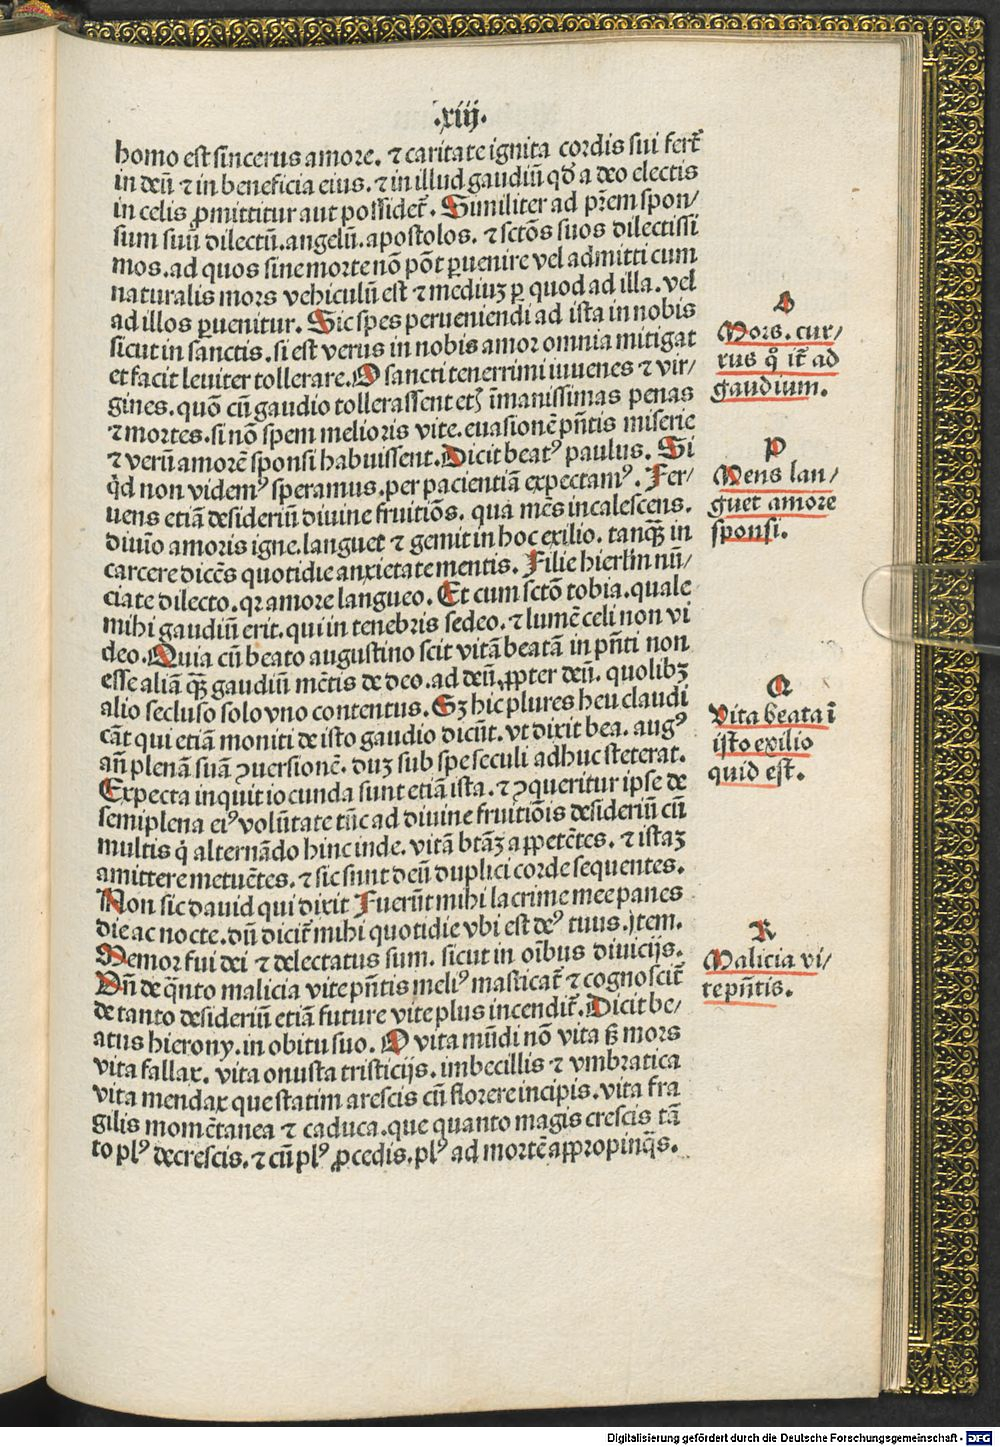 .xiij.
homo est sincerus amore. ⁊ caritate ignita cordis sui fert᷑
in deū ⁊ in beneficia eius. ⁊ in illud gaudiū qd̓ a deo electis
in celis ꝓmittitur aut possidet᷑. Similiter ad pr̄em spon/
sum suū dilectū. angelū. apostolos. ⁊ sctōs suos dilectissi
mos. ad quos sine morte nō pōt ꝑuenire vel admitti cum
naturalis mors vehiculū est ⁊ mediuꝫ ꝑ quod ad illa. vel
ad illos ꝑuenitur. Sic spes perueniendi ad ista in nobis
sicut in sanctis. si est verus in nobis amor omnia mitigat
et facit leuiter tollerare. O sancti tenerrimi iuuenes ⁊ vir/
gines. quō cū gaudio tollerassent etꝫ īmanissimas penas
⁊ mortes. si nō spem melioris vite. euasionē pn̄tis miserie
⁊ verū amorē sponsi habuissent. Dicit beatꝰ paulus. Si
qd̓ non videmꝰ speramus. per pacientiā expectamꝰ. Fer/
uens etiā desideriū diuine fruitiōs. qua mēs incalescens.
diuīo amoris igne. languet ⁊ gemit in hoc exilio. tanqꝫ in
carcere dicēs quotidie anxietate mentis. Filie hierl'm nū/
ciate dilecto. qꝛ amore langueo. Et cum sctō tobia. quale
mihi gaudiū erit. qui in tenebris sedeo. ⁊ lumē celi non vi
deo. Quia cū beato augustino scit vitā beatā in pn̄ti non
esse aliā qꝫ gaudiū mētis de deo. ad deū. ꝓpter deū. quolibꝫ
alio secluso solo vno contentus. Sꝫ hic plures heu claudi
cāt qui etiā moniti de isto gaudio dicūt. vt dixit bea. augꝰ
an̄ plenā suā ꝯuersionē. duꝫ sub spe seculi adhuc steterat.
Expecta inquit iocunda sunt etiā ista. ⁊ ꝯqueritur ipse de
semiplena eiꝰ volūtate tūc ad diuine fruitiōis desideriū cū
multis qͥ alternādo hinc inde. vitā btāꝫ appetētes. ⁊ istaꝫ
amittere metuētes. ⁊ sic sunt deū duplici corde sequentes.
Non sic dauid qui dixit Fuerūt mihi lacrime mee panes
die ac nocte. dū dicit᷑ mihi quotidie vbi est deꝰ tuus. Jtem.
Memor fui dei ⁊ delectatus sum. sicut in oībus diuicijs.
Dn̄ de qͣnto malicia vite pn̄tis meliꝰ masticat᷑ ⁊ cognoscit᷑
de tanto desideriū etiā future vite plus incendit᷑. Dicit be/
atus hierony. in obitu suo. O vita mūdi nō vita sꝫ mors
vita fallax. vita onusta tristicijs. imbecillis ⁊ vmbratica
vita mendax que statim arescis cū florere incipis. vita fra
gilis momētanea ⁊ caduca. que quanto magis crescis tā
to plꝰ decrescis. ⁊ cū plꝰ ꝓcedis. plꝰ ad mortē appropinqͣs.
Mors. cur/
rus qͦ it᷑ ad
gaudium.
P
Mens lan/
guet amore
sponsi.
Q
Vita beata ī
isto exilio
quid est.
R
Malicia vi/
te pn̄tis.
Digitalisierung gefördert durch die Deutsche Forschungsgemeinschaft - DFG